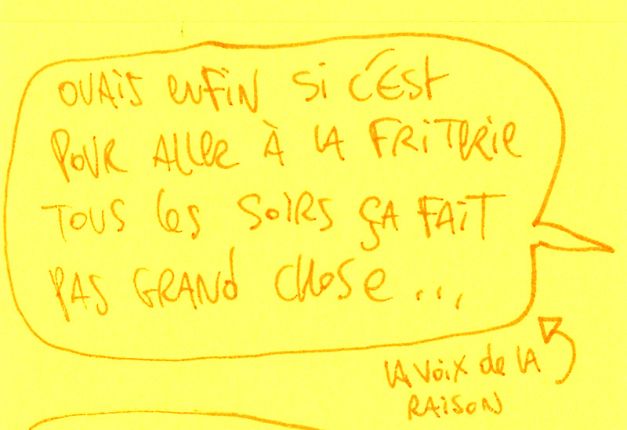 OUAIS ENFIN Si C'EST
POUR ALLER À LA FRiTERiE
TOUS les SOiRS ÇA FAiT
PAS GRANd ChOSe...
LA VOiX de LA
RAiSON